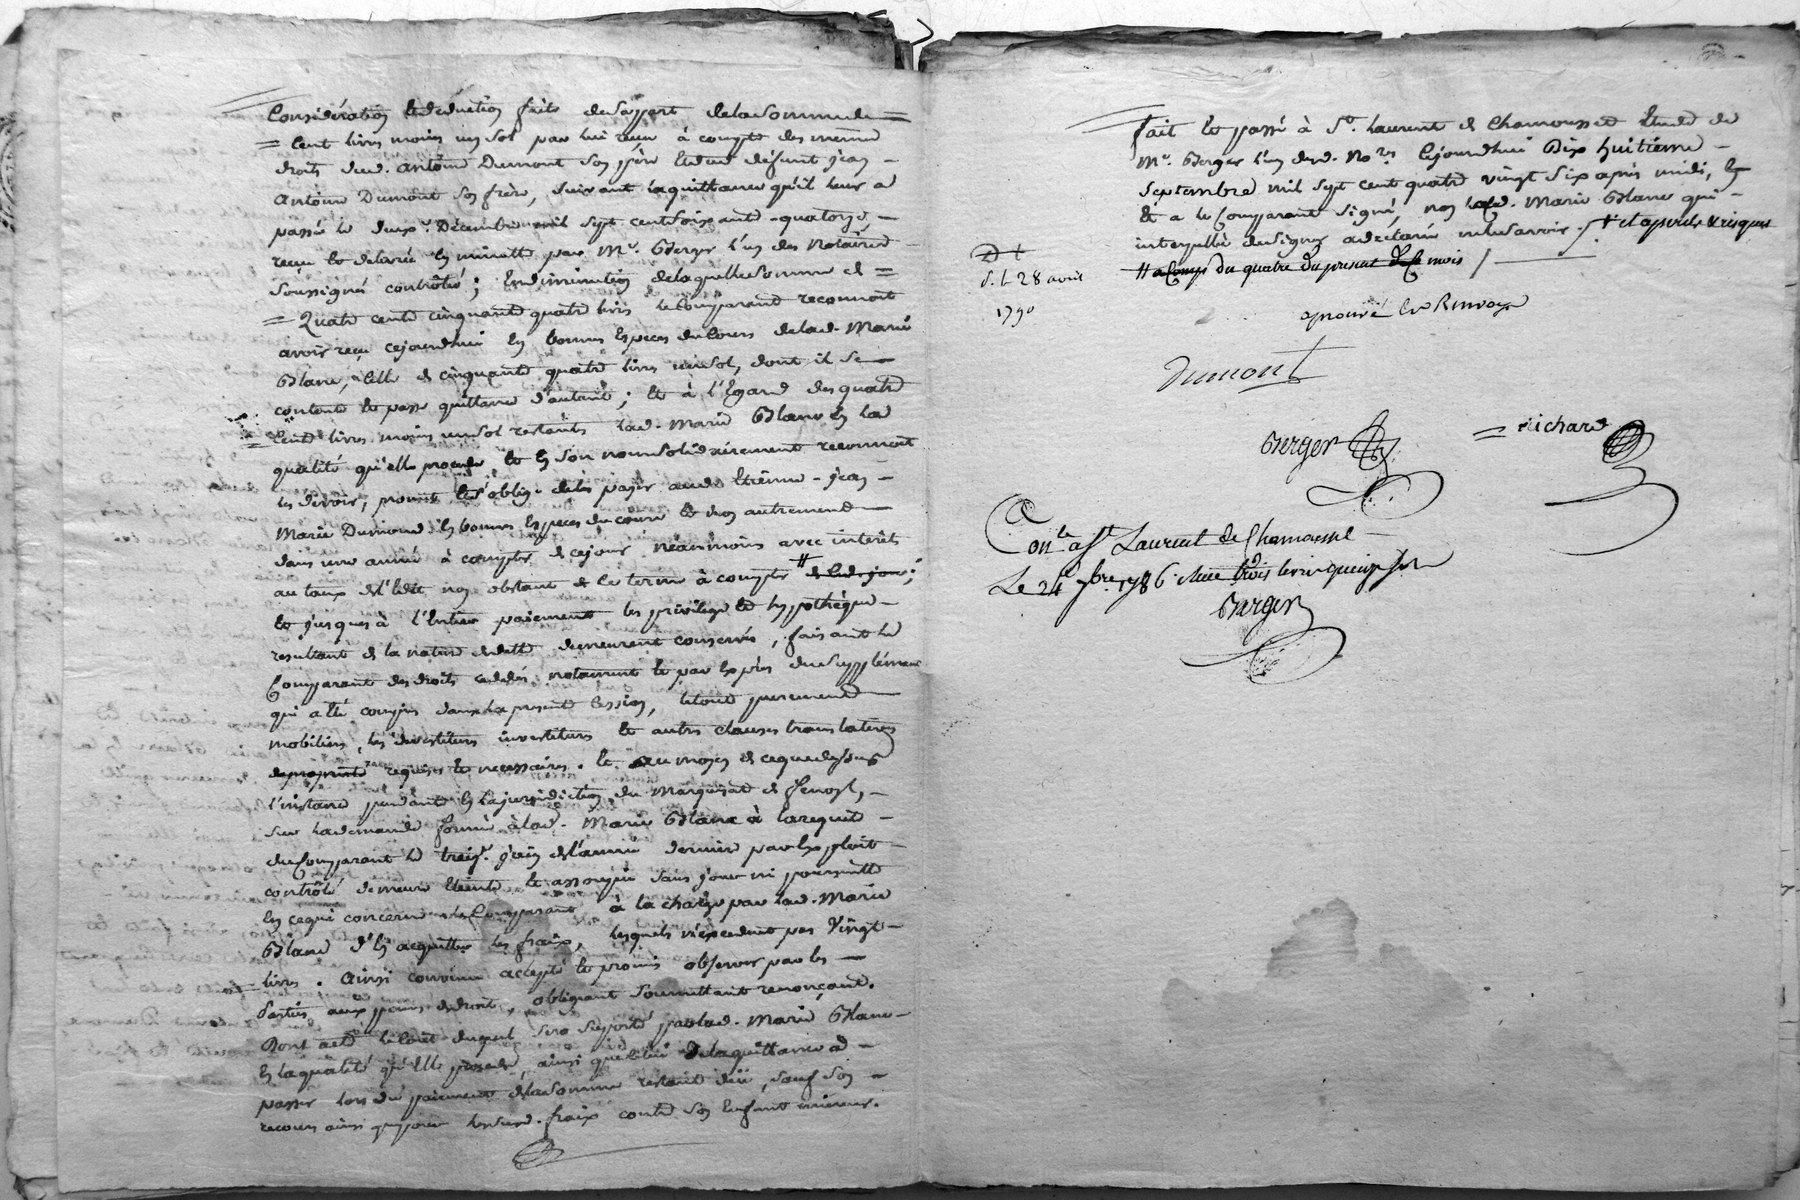 Considération et déduction faite de sa part de la somme de
= Cent livres moins un sol par lui reçu à compte des meme
droits dud. Antoine Dumont son père et dud. défunt jean
Antoine Dumont son frère, suivant la quittance qu'il leur a
passé le deuxe. Décembre mil sept cent soixante-quatorze,
reçue et délivrée en minutte par Me. Berger l'un des Notaires
soussignés contrôlé; en diminution de laquelle somme de =
= Quatre cents cinquante quatre livres le Comparant reconnoit
avoir reçu cejourdhui en bonnes Especes du Cours de lad. Marie
Blanc, celle de cinquante quatre livres un sol, dont il se
contente et passe quittance d'autant; et à l'Egard des quatre
Cents livres moins un sol restants lad. Marie Blanc en la
qualité qu'elle procede et en son nom solidairement reconnoit
les devoir, promet et s'oblige de les payer aud. Etienne-jean
Marie Dumond en bonnes Especes du cours et non autrement
dans une année à compter de ce jour néanmoins avec intérêts
au taux de l'Edit non obstant de ce terme à compter # de ced. jour;
et jusques à l'Entier paiement les privilège et hypothèque
resultant de la nature de dette demeurent conservés, faisant le
Comparant des droits cedés, notamment et par Exprès du Supplément
qui a été compris dans la presente Cession, le tout purement
mobilier, les devestitures investitures et autres clauses translatives
de propriété requises et necessaires. et au moyen de ce que dessus
l'instance pendante en la jurisdiction du Marquisat de fenoyl,
sur la demande formée à lad. Marie Blanc à la requête
du Comparant le treize. juin de l'année derniere par Exploit
contrôlé demeure Eteinte et assoupie sans jour ni poursuitte
En ce qui concerne le Comparant, à la charge par lad. Marie
Blanc d'En acquitter les fraix, lesquels n'excedent pas Vingt
livres. Ainsi convenu accepté et promis observer par les
Parties aux peines de droit, obligeant soumettant renonçant.
Dont acte le Cout duquel sera Supporté par lad. Marie Blanc
En la qualité qu'Elle procede, ainsi que celui de la quittance à
passer lors du paiement de la somme restant düe, sauf son
recours ainsi que pour lesd. fraix contre son Enfant mineur.
Fait et passé à St. Laurent de Chamousset Etude de
Me. Berger l'un desd. Nores. cejourdhui Dix huitieme
Septembre mil sept cent quatre vingt six après midi,
et a le Comparant signé, non lad. Marie Blanc qui
interpellée de signer a déclaré ne le savoir. / # et a perils & risques
# à Comps. du quatre du present mois /
D t
d. L 28 avril
1790
aprouvé les Renvoys
Dumont
Berger
= Richard
Conle. à St Laurent de Chamousset
Le 24 7bre 1786 Reçu trois livres quinze sols
Berger